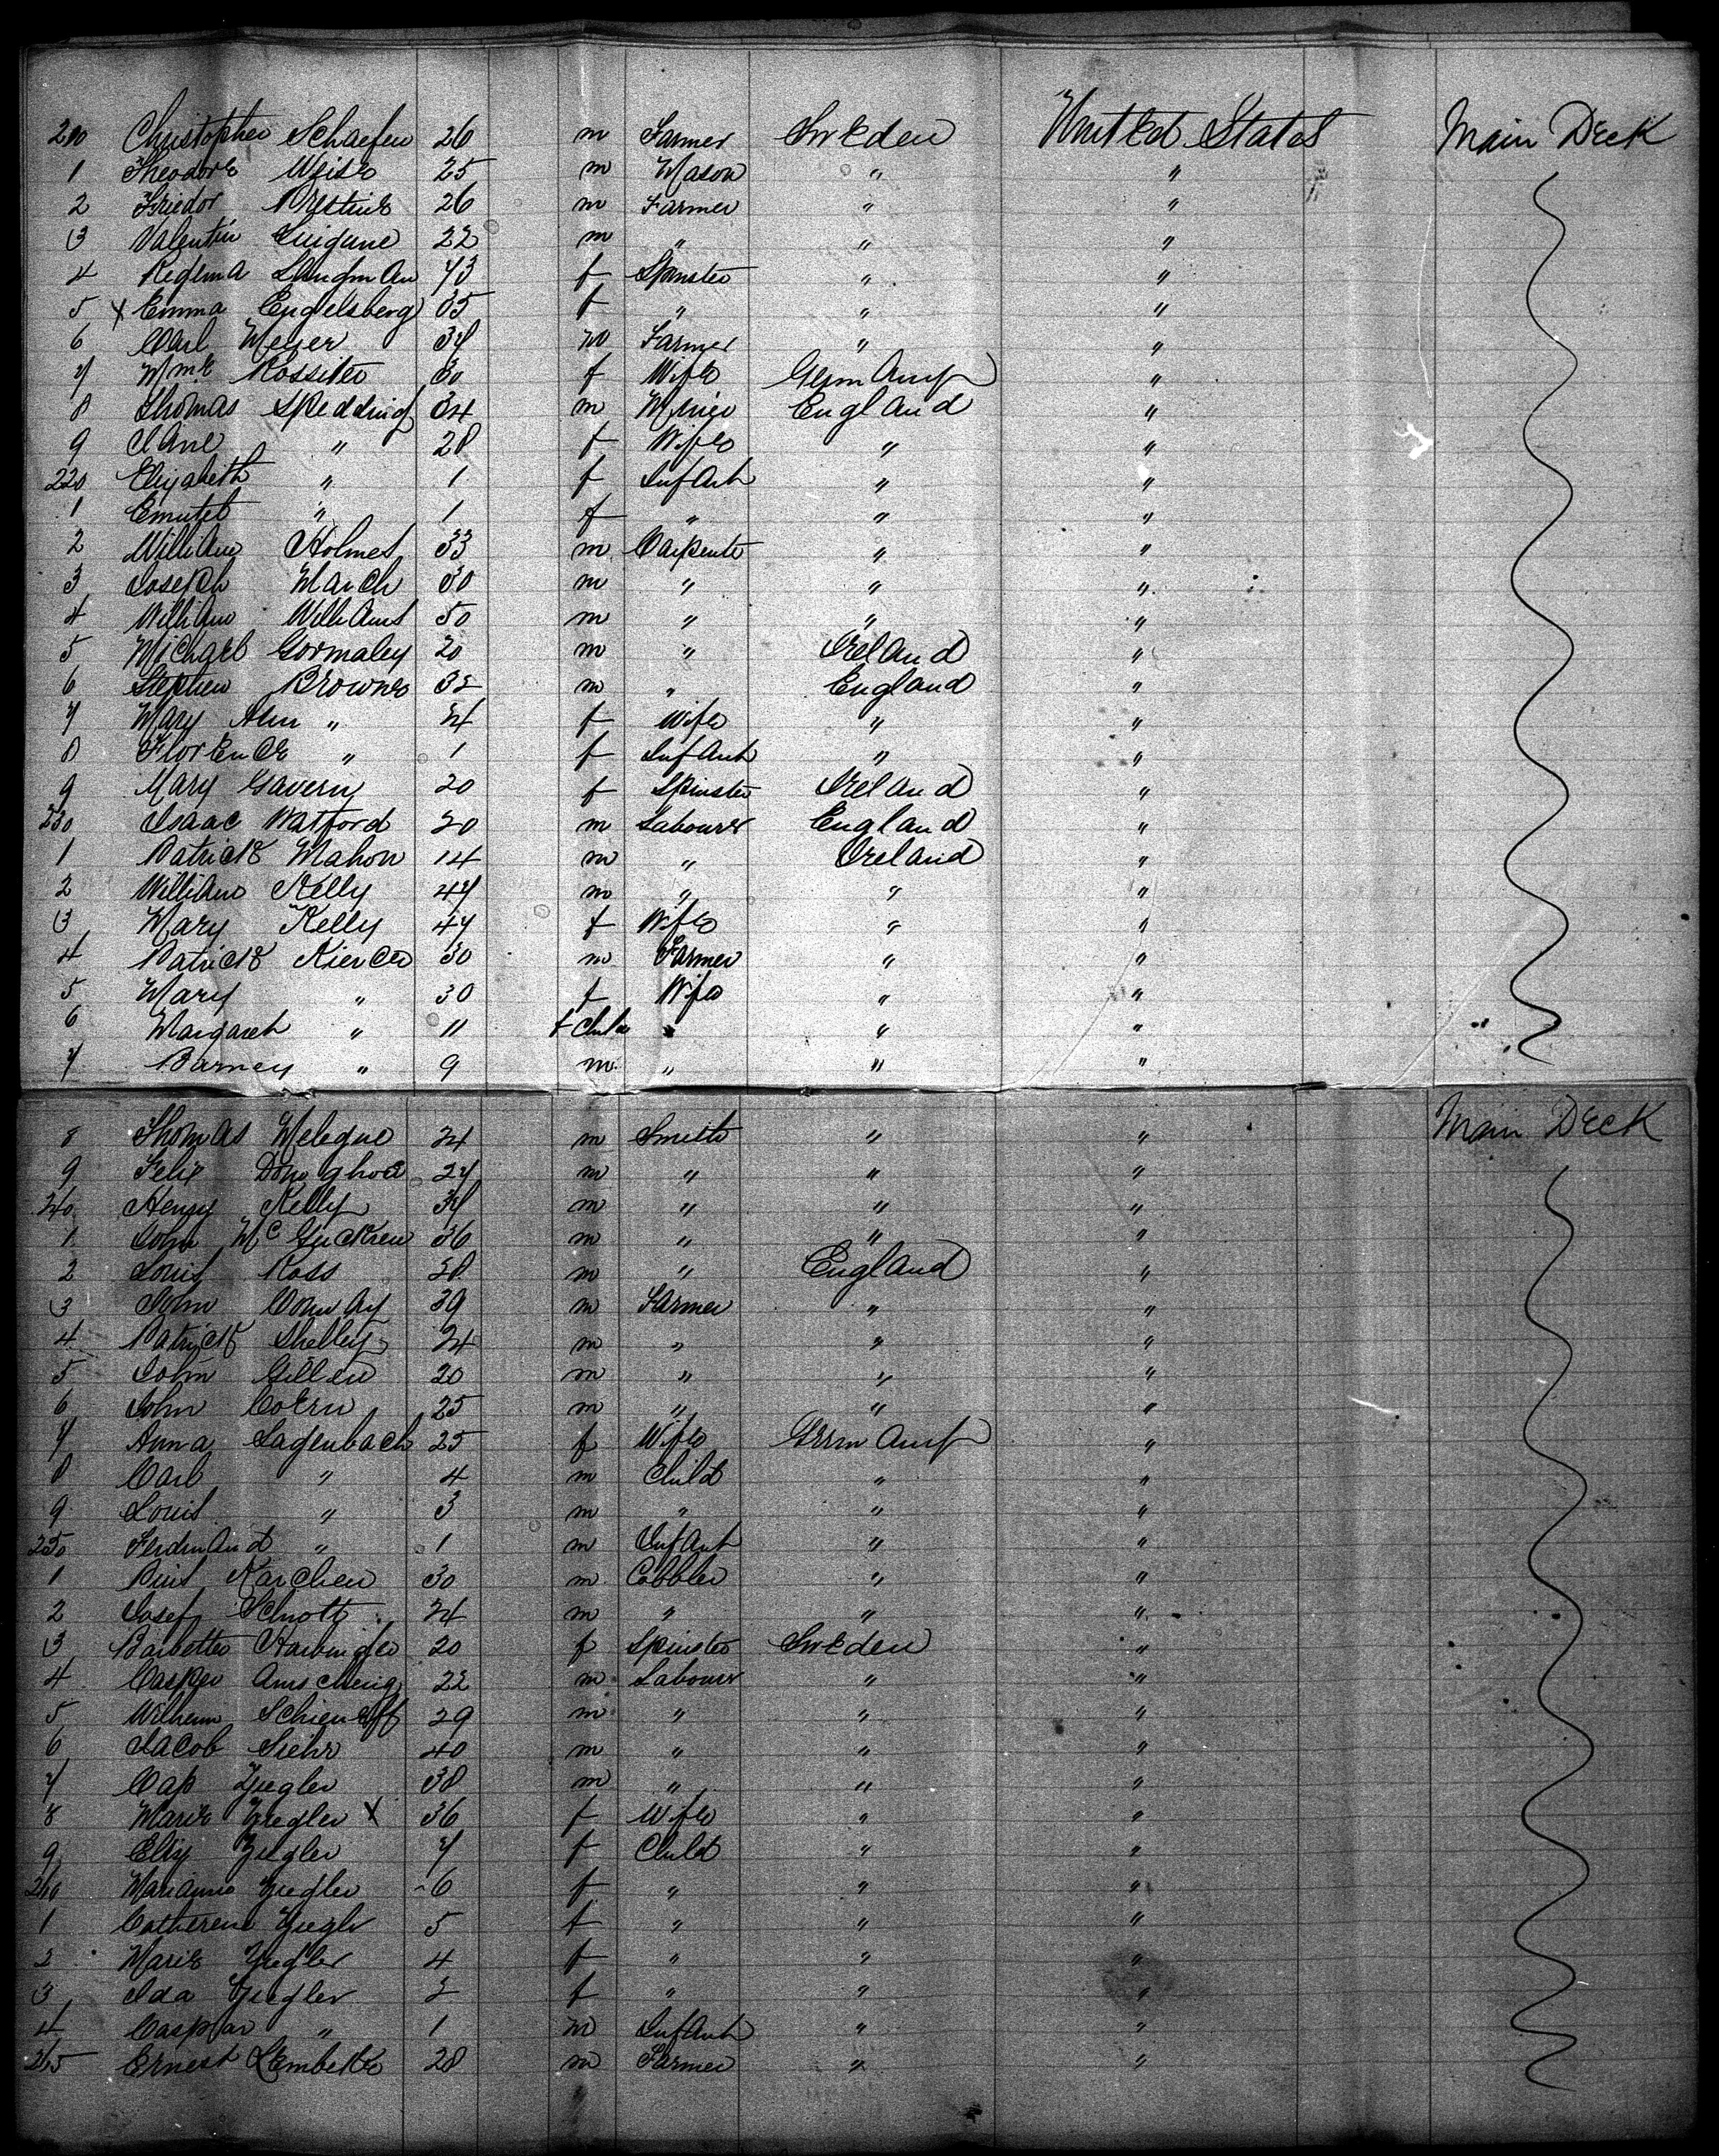 210 Christopher Schaefer 26 m Farmer Sweden United States Main Deck
1 Theodore Weise 25 m Mason " "
2 26 m Farmer " "
3 Valentin 22 m " " "
4 43 f Spinster " "
5 x Emma Engelsberg 35 f " " "
6 Carl Meyer m Farmer " "
7 Rossiter 30 f Wife Germany "
8 Thomas Spedding 34 m England "
9 Jane " 28 f Wife " "
220 Elizabeth " 1 f Infant " "
1 " 1 f " " "
2 William Holmes 33 m Carpenter " "
3 Joseph March 30 m " " "
4 William Williams 50 m " " "
5 Michael Gormaley 20 m " Ireland "
6 Stephen Browne 32 m " England "
7 Mary Ann " 24 f Wife " "
8 Florence " 1 f Infant " "
9 Mary Gavern 20 f Spinster Ireland "
230 Isaac Watford 20 m Labourer England "
1 Patrick Mahon 14 m " Ireland "
2 William Kelly 47 m " " "
3 Mary Kelly 47 f Wife " "
4 Patrick Kierce 30 m Farmer " "
5 Mary " 30 f Wife " "
6 Margaret " 11 f Child " " "
7 Barney " 9 m " " "
8 Thomas 24 m Smith " " Main Deck
9 Felix Donoghoe 27 m " " "
240 Henry Kelly m " " "
1 John 36 m " " "
2 Louis Ross 28 m " England "
3 John Conway 39 m Farmer " "
4 Patrick Shelley 24 m " " "
5 John Gillen 20 m " " "
6 John 25 m " " "
7 Anna Lagenbach 25 f Wife Germany "
8 Carl " 4 m Child " "
9 Louis " 3 m " " "
250 Ferdinand " 1 m Infant " "
1 Pius Karcher 30 m Cobbler " "
2 Josef Schrott 24 m " " "
3 20 f Spinster Sweden "
4 Casper 22 m Labourer " "
5 Wilhelm 29 m " " "
6 Jacob Siehr 40 m " " "
7 Cap Ziegler 38 m " " "
8 Marie Ziegler x 36 f Wife " "
9 Eliz Ziegler 7 f Child " "
260 Marianne Ziegler 6 f " " "
1 Catherine Ziegler 5 f " " "
2 Marie Ziegler 4 f " " "
3 Ida Ziegler 2 f " " "
4 Caspar " 1 m Infant " "
265 Ernest Lembeke 28 m Farmer " "